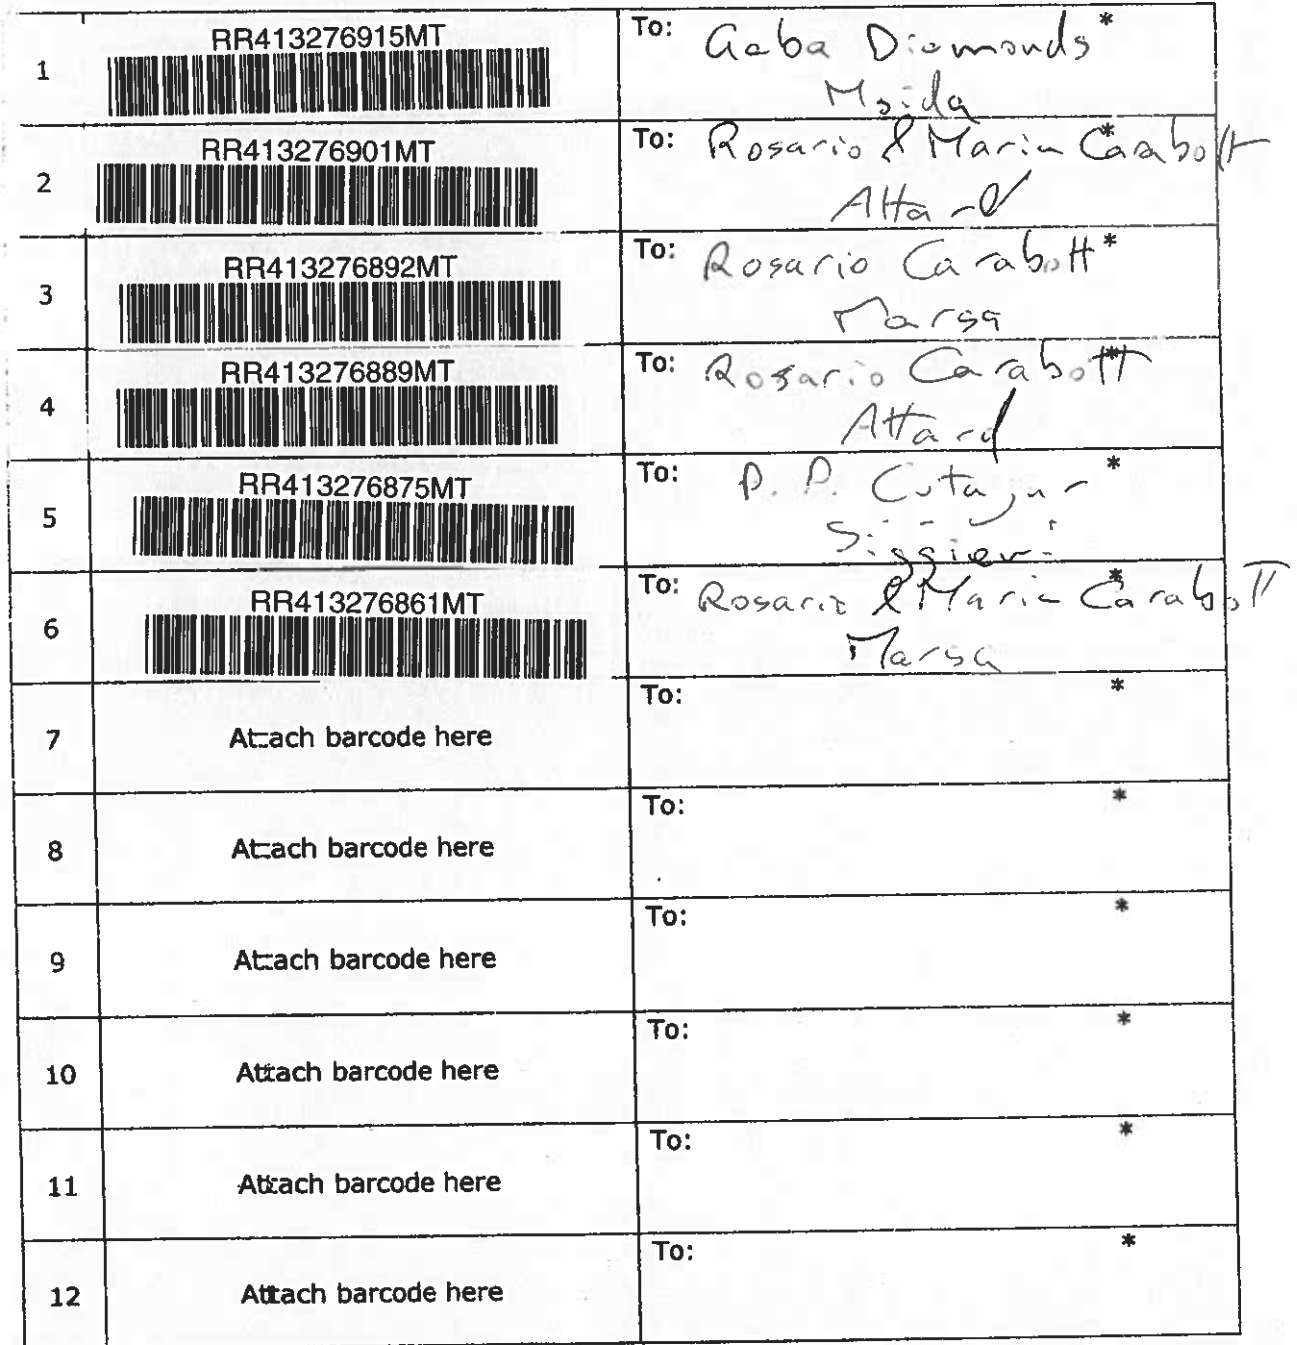 RR413276915MT
To: *
1
Gaba Diamonds
Msida
RR413276901MT
To: *
2
Rosario & Maria Carabott
Attard
RR413276892MT
To: *
3
Rosario Carabott
Marsa
RR413276889MT
To: *
4
Rosario Carabott
Attard
RR413276875MT
To: *
5
P. P. Cutajar
Siggiewi
RR413276861MT
To: *
6
Rosario & Maria Carabott
Marsa
To: *
7 Attach barcode here
To: *
8 Attach barcode here
To: *
9 Attach barcode here
To: *
10 Attach barcode here
To: *
11 Attach barcode here
To: *
12 Attach barcode here